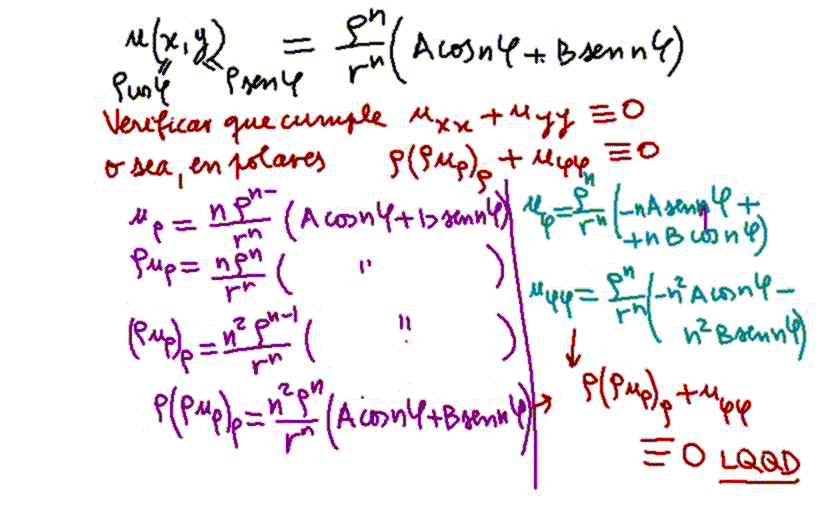 u(x,y) = ρⁿ/rⁿ (A cos nφ + B sen nφ)
ρcosφ ρsenφ
Verificar que cumple u_xx + u_yy ≡ 0
o sea, en polares ρ(ρu_ρ)_ρ + u_φφ ≡ 0
u_ρ = nρⁿ⁻/rⁿ (A cos nφ + B sen nφ)
ρu_ρ = nρⁿ/rⁿ ( " )
(ρu_ρ)_ρ = n²ρⁿ⁻¹/rⁿ ( " )
ρ(ρu_ρ)_ρ = n²ρⁿ/rⁿ (A cos nφ + B sen nφ) →
u_φ = ρⁿ/rⁿ (-nA sen nφ +
+nB cos nφ)
u_φφ = ρⁿ/rⁿ (-n²A cos nφ -
n²B sen nφ)
↓
ρ(ρu_ρ)_ρ + u_φφ
≡ 0 LQQD